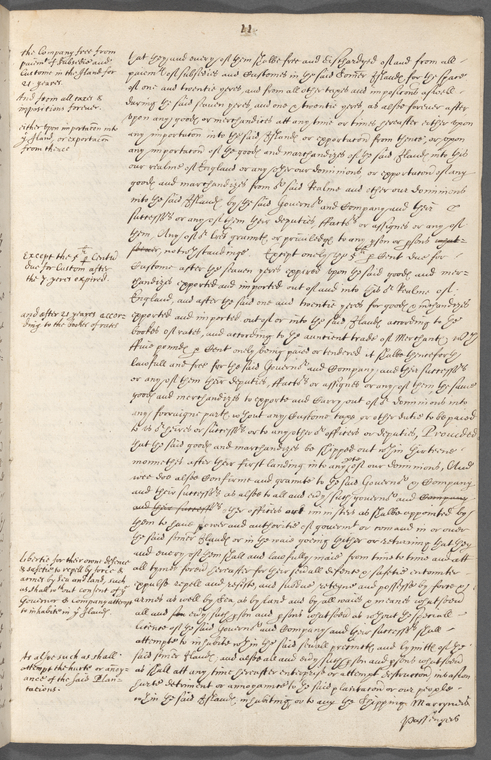 11
the Company free from
paiemt of Subsidie and
Customs in the Iland for
21 yeares.
And from all taxes &
impositions forever.
either upon importation into
ye Iland, or exportation
from thence
Except the 5 li p Cent
due for Custom after
the 7 yeres expired.
and after 21 yeares accor-
ding to the order of rates
libertie for their owne defence
& safetie to repell by force &
armes by sea and land, such
as shall wthout consent of ye
Governor & Company attempt
to inhabite in ye Ilands.
As also such as shall
attempt the hurte or annoy-
ance of the said Plan-
tacions.
that they and every of them shalbe free and discharged of and from all
paiemt of subsidies and Customes in the said Somer Ilands for the space
of one and twentie yeres, and from all other taxes and impositions aswell
during the said seaven yeres and one & twentie yeres as also forever after
upon any goods or merchandizes att any time or times hereafter either upon
any importation into the said Ilands or exportation from thence, or upon
any importation of the goods and marchandizes of the said Ilands into this
our realme of England or any other our dominions, or exportation of any
goods and marchandizes from the said Realme and other our dominions
into the said Ilands by the said Governor and Company and their
successors or any of them their deputies ffactors or assignes or any of
them. Any
notwthstanding. Except onely the 5 li p Cent due for
Custome after the seaven yeres expired upon the said goods and mer-
chandizes exported and imported out of and into this or Realme of
England, and after the said one and twentie yeres for goods & marchandizes
exported and imported out of or into the said Ilands according to the
bookes of rates, and according to the auncient trade of Merchants
five pounds p Cent onely being paied or tendered it shalbe thenceforth
lawfull and free for the said Governor and Company and their successors
or any of them their deputies, ffactors or assignes or any of them the same
goods and merchandizes to exporte and Carry out of or dominions into
any forraigne parts without any Custome taxe or other dutie to be paied
to us or heires or successors or to any other or officers or deputies, Provided
that the said goods and marchandizes be shipped out wthin thirteene
monethes after their first landing into any of our dominions, And
wee doe also Confirme and graunte to the said Governor & Company
and their successors as also to all and every such governor and Company
and their successors other officers and ministers as shalbe appointed by
them to have power and authoritie of governmt or comaund in or over
the said Somer Ilands or in the waie goeing thither or returning that they
and every of them shall and lawfully maie from time to time and att
all tymes forever hereafter for their severall defence & safetie encounter
expulse repell and resiste, and subdue seteyne and possesse by force &
armes as well by sea as by land and by all waies & meanes whatsoever
all and every such pson and psons whatsoever as wthout the speciall
licence of the said Governor and Company and their successors shall
attempte to inhabite wthin the said severall precincts, and lymitts of the
said Somer Ilands, and also all and every such pson and psons whatsoever
as shall att any time hereafter enterprise or attempt destruction invasion
hurte detriment or annoyance to the said plantation or our people
wthin the said Ilands, inhabiting or to any the shipping Marryners
passengers